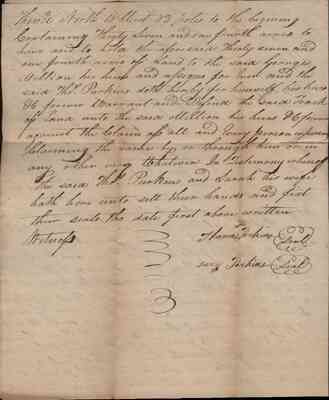 thence North West 83 poles to the begining
Containing Thirty Seven and one fourth acres to
have and to hold the aforesaid Thirty seven and
one fourth acres of Land to the said George
Million his heirs and assigns for ever and the
said Thos Perkins doth hereby for himself his heirs
&c forever Warrant and defend the said Tract
of Land unto the said Million his heirs &c forever
against the Claim of all and Every person
Claiming the same by or through him or in
any other way Whatever In Testimony whereof
the said Thos Perkins and Sarah his wife
hath here unto set their hands and fixt
their seals the date first above written
Witness
Thomas Perkins Seal
Perkins Seal